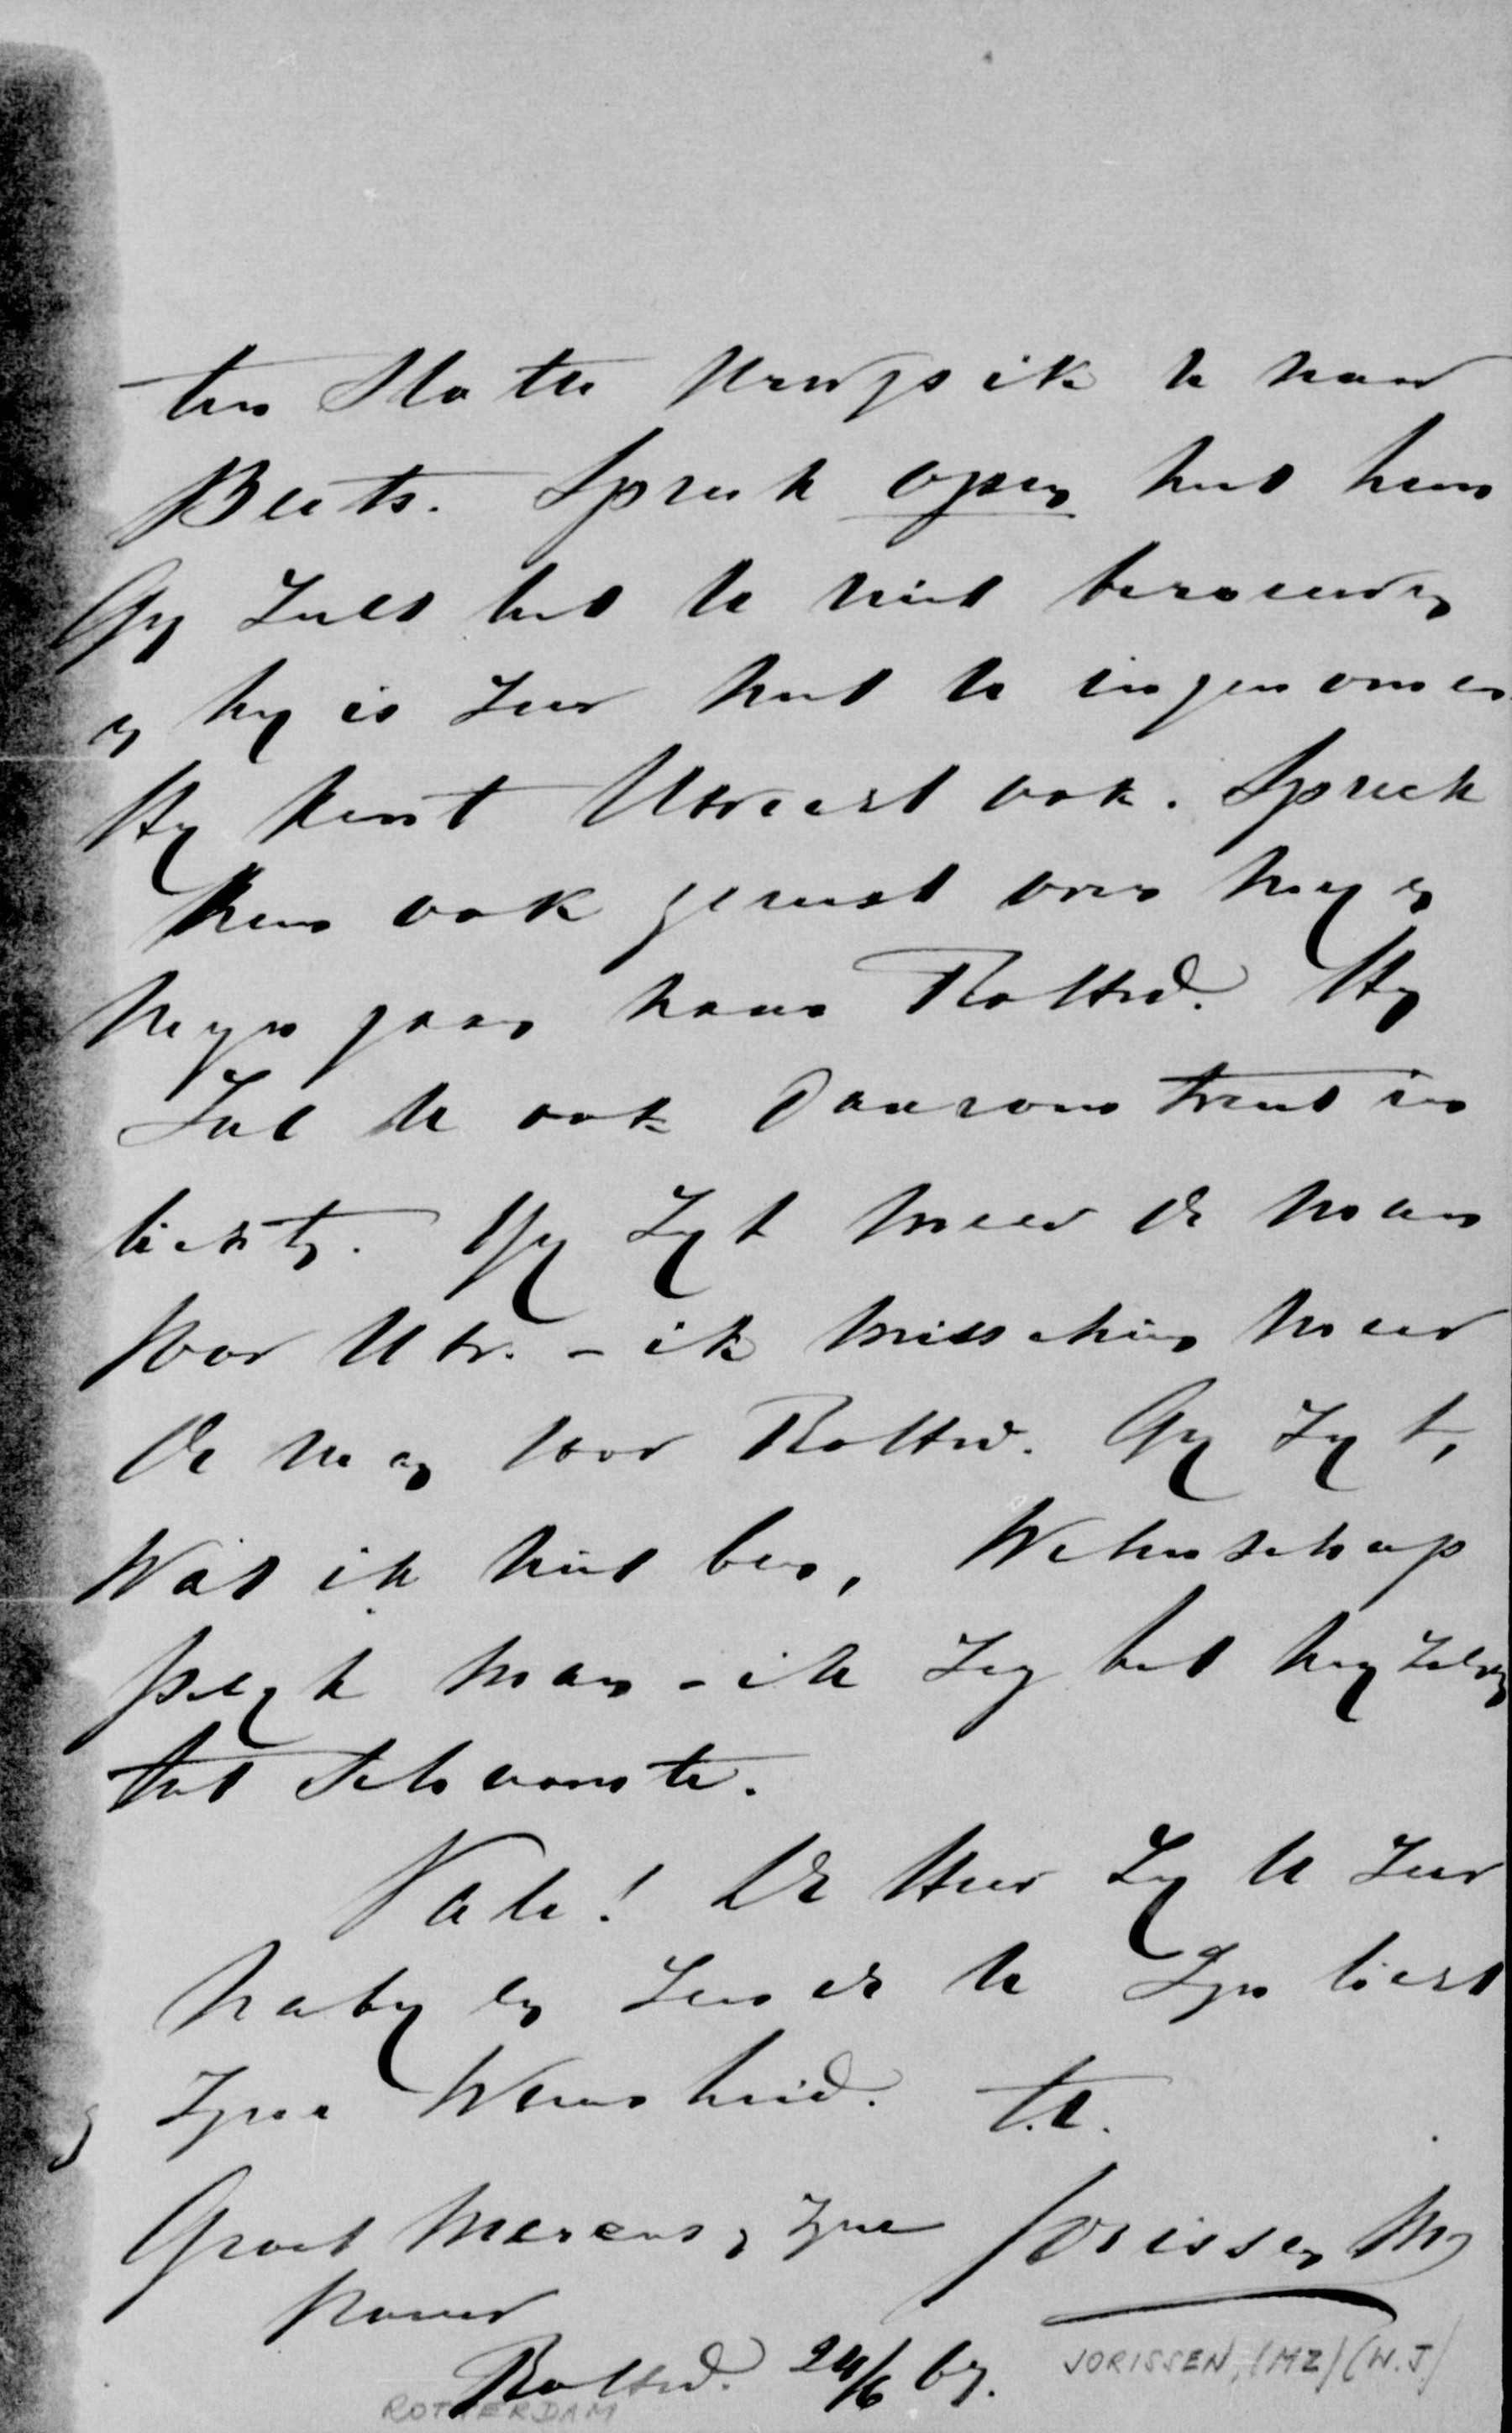 Ten slotte verwys ik u naar
Beets. Spreek open met hem
Gy zult het u niet berouwen
en hy is zeer met u ingenomen
Hy kent Utrecht ook. Spreek
hem ook gerust over my en
myn gaan naar Rottd. Hy
zal u ook daaromtrent in
lichten. Gy zyt meer de man
voor Utr. - ik misschien meer
de man voor Rottd. Gy zyt,
wat ik niet ben, wetenschap
pelyk man - ik zeg het myzelven
tot schande.
Vale! De Heer zy u zeer
naby en zende u Zyn licht
en Zyne Wysheid. t.t.
Groet Marcus, zyne Jorissen Mz
vrouw
Rottd. 24/6 67.
JORISSEN, (MZ) (W.J)
ROTTERDAM